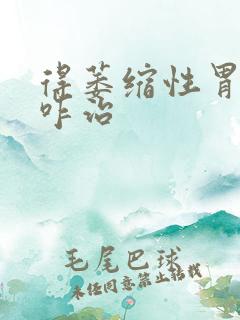 得萎缩性胃
咋治
毛尾巴球
未经同意禁止转载